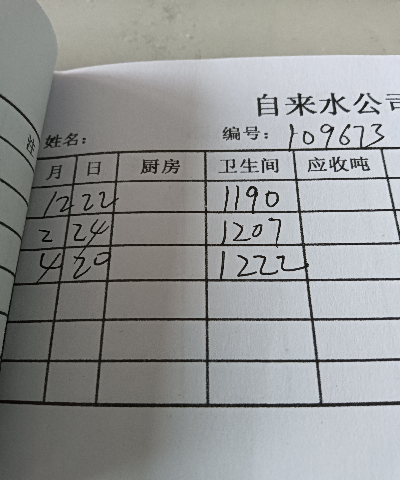 自来水公司
姓名： 编号：109673
月 日 厨房 卫生间 应收吨
12 22 1190
2 24 1207
4 20 1222